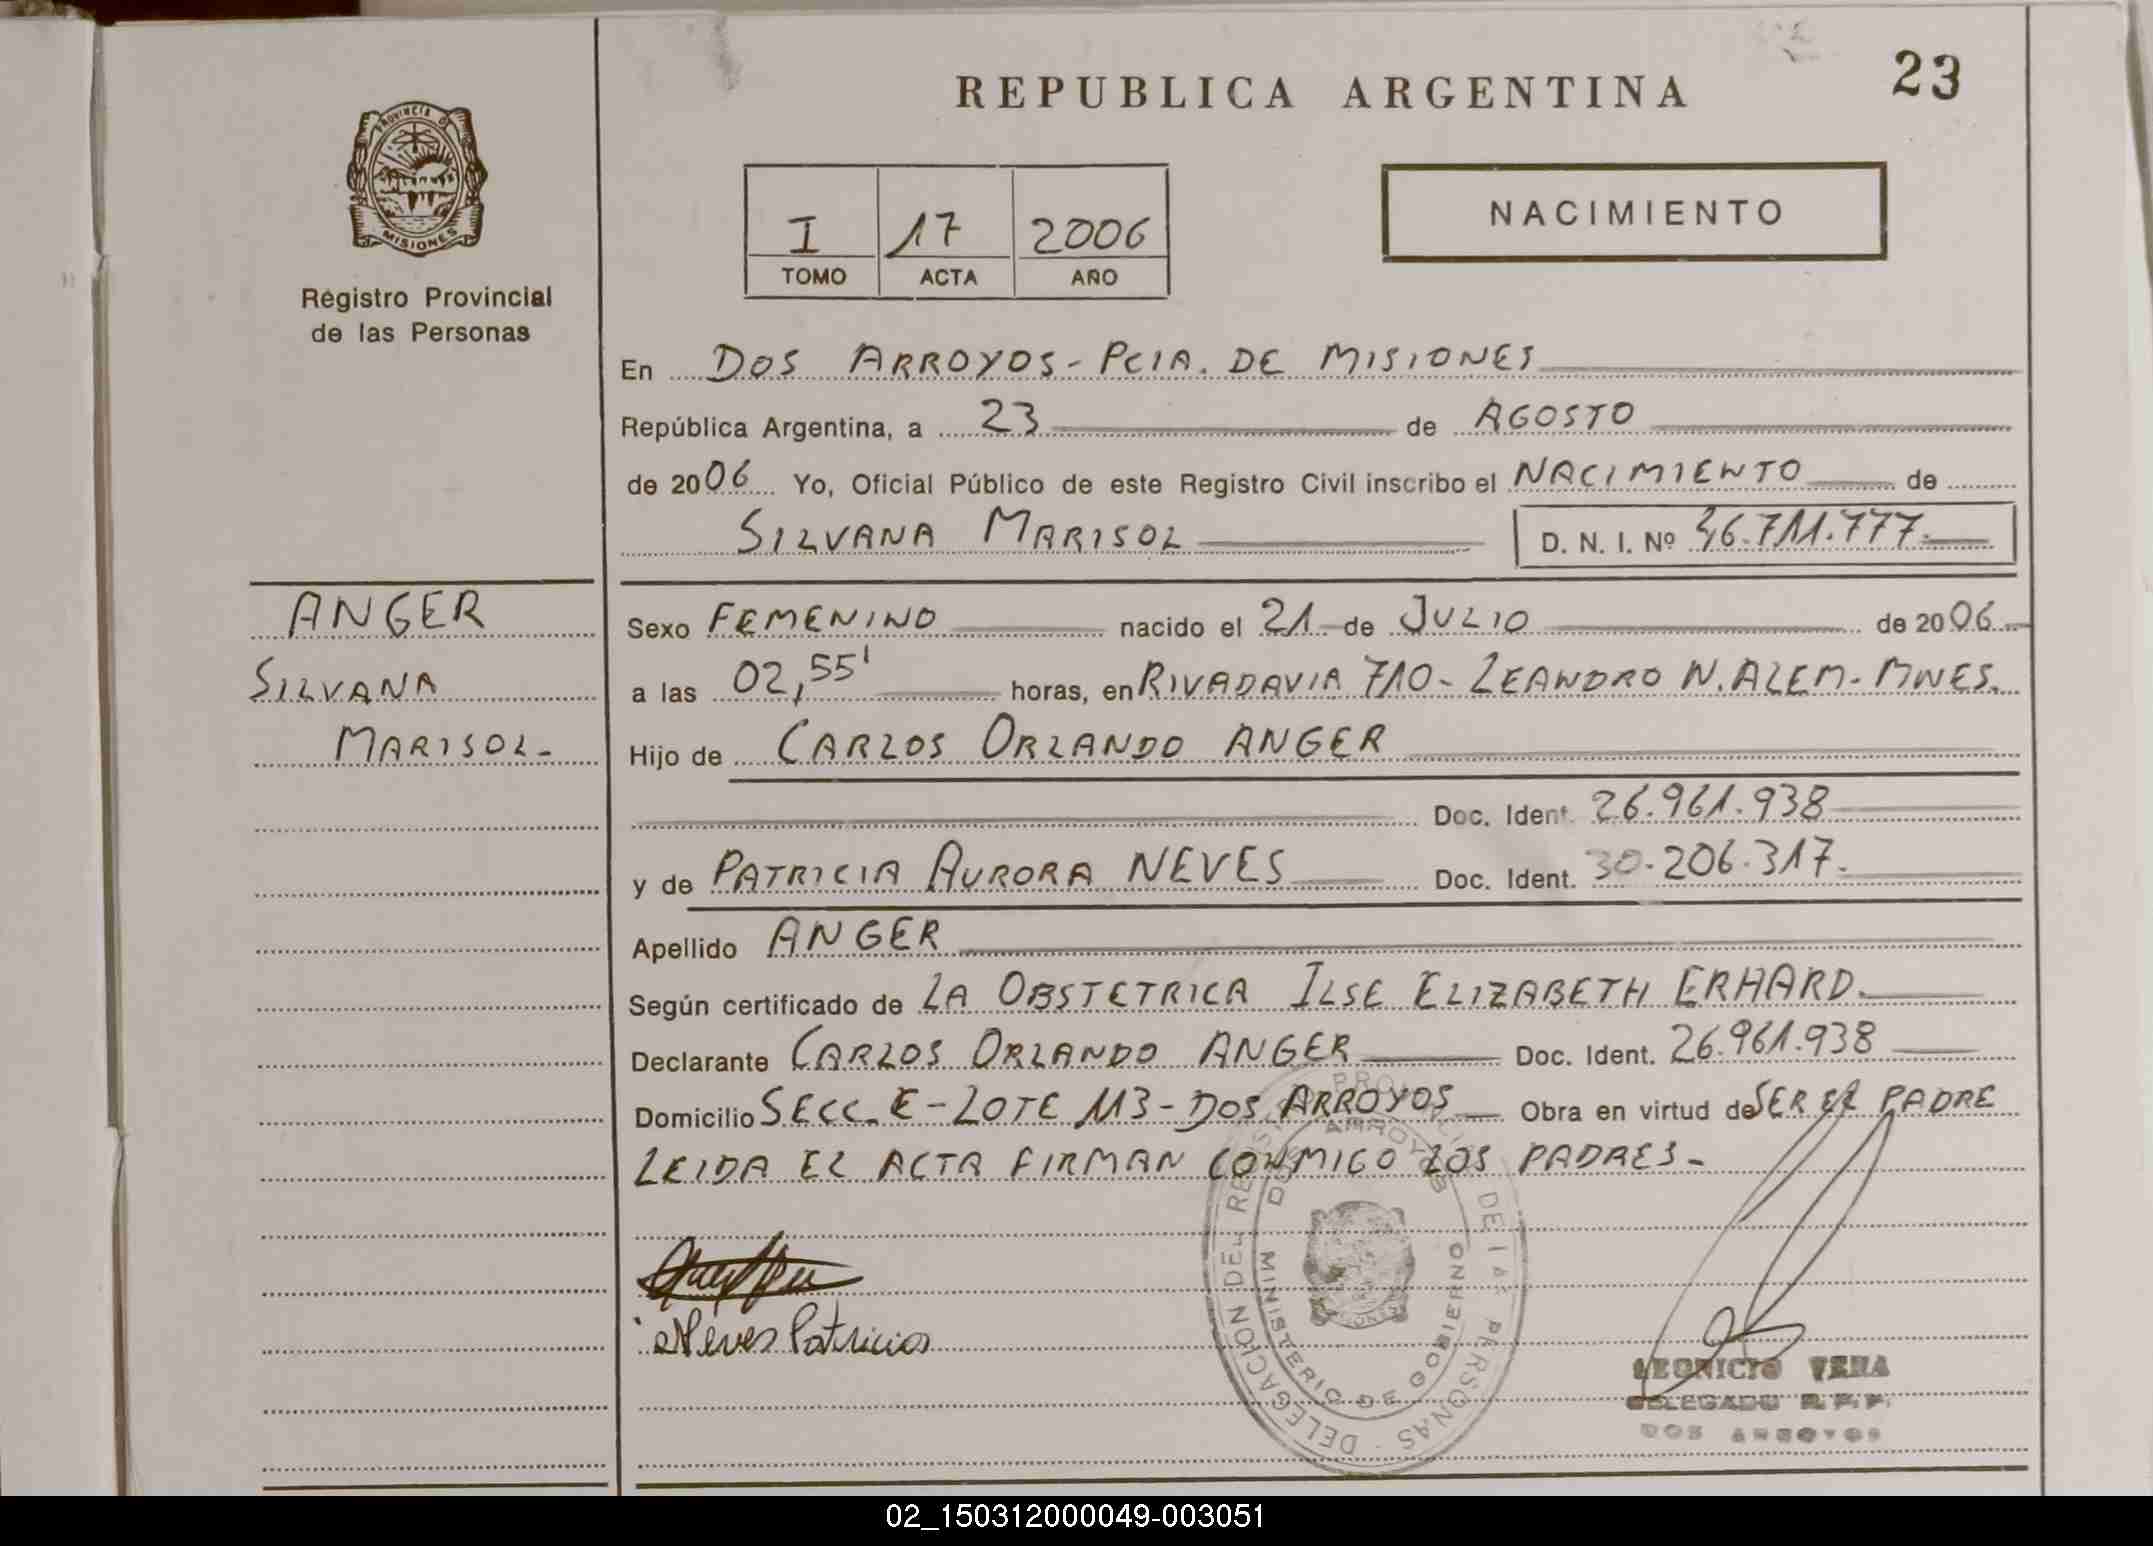 REPUBLICA ARGENTINA
23
PROVINCIA DE
MISIONES
Registro Provincial
de las Personas
I 17 2006
TOMO ACTA AÑO
NACIMIENTO
En DOS ARROYOS - PCIA. DE MISIONES
República Argentina, a 23 de AGOSTO
de 2006 Yo, Oficial Público de este Registro Civil inscribo el NACIMIENTO de
SILVANA MARISOL D. N. I. Nº 46.711.777.
ANGER
SILVANA
MARISOL-
Sexo FEMENINO nacido el 21 de JULIO de 2006
a las 02,55' horas, en RIVADAVIA 710- LEANDRO N. ALEM- MNES.
Hijo de CARLOS ORLANDO ANGER
Doc. Ident. 26.961.938
y de PATRICIA AURORA NEVES Doc. Ident. 30.206.317.
Apellido ANGER
Según certificado de LA OBSTETRICA ILSE ELIZABETH ERHARD.
Declarante CARLOS ORLANDO ANGER Doc. Ident. 26.961.938
Domicilio SECC. E - LOTE 113 - DOS ARROYOS Obra en virtud de SER EL PADRE
LEIDA EL ACTA FIRMAN CONMIGO LOS PADRES-
Neves Patricia
DELEGACION DEL REGISTRO PROVINCIAL DE LAS PERSONAS
DOS ARROYOS
MINISTERIO DE GOBIERNO
LEONICIO VERA
DELEGADO R. P. P.
DOS ARROYOS
02_150312000049-003051